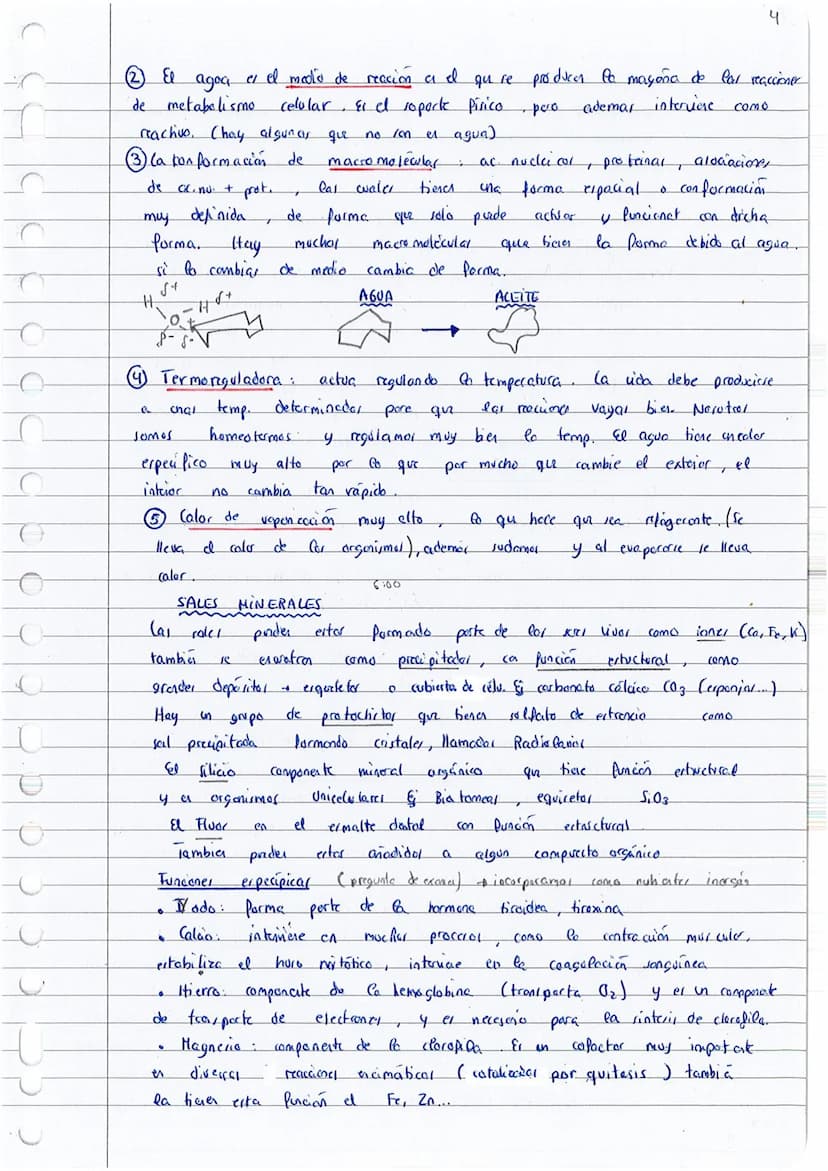 4
② El agua es el medio de reacción en el que se producen la mayoría de las reacciones
de metabolismo celular. Es el soporte físico, pero ademas interviene como
reactivo. (hay algunas que no son en agua)
③ La conformación de macromoleculas: ac. nucleicos, proteinas, asociaciones
de ac.nu. + prot., las cuales tienen una forma espacial o conformación
muy definida, de forma que solo puede actuar y funcionar con dicha
forma. Hay muchas macromoleculas que tienen la forma debido al agua.
si lo cambias de medio cambia de forma.
H δ+ O - H δ+ AGUA → ACEITE
δ- δ-
④ Termoreguladora: actua regulando la temperatura. La vida debe producirse
a unas temp. determinadas para que las reacciones vayan bien. Nosotros
somos homeotermos y regulamos muy bien la temp. El agua tiene un calor
específico muy alto por lo que por mucho que cambie el exterior, el
interior no cambia tan rápido.
⑤ Calor de vaporización muy alto, lo que hace que sea refrigerante. (Se
lleva el calor de los organismos), además sudamos y al evaporarse se lleva
calor.
6:00
SALES MINERALES
Las sales pueden estar formado parte de los seres vivos como iones (Ca, Fe, K)
también se encuentran como precipitados, con función estructural, como
grandes depósitos → esqueletos o cubierta de célu. Ej carbonato cálcico CO3 (esponjas...)
Hay un grupo de protoctistos que tienen sulfato de estroncio como
sal precipitada formando cristales, llamados Radiolarios
El silicio componente mineral orgánico que tiene función estructural
y en organismos Unicelulares Ej Diatomeas, equisetos SiO3
El Fluor en el esmalte dental con función estructural
Tambien pueden estar añadidos a algun compuesto orgánico
Funciones específicas (pregunta de examen) → incorporamos como nutrientes inorgán
• Yodo: Forma parte de la hormona tiroidea, tiroxina
• Calcio: interviene en muchos procesos, como la contracción muscular,
estabiliza el huso mitótico, interviene en la coagulación sanguínea
• Hierro: componente de la hemoglobina (transporta O2) y es un component
de transporte de electrones, y es necesario para la síntesis de clorofila.
• Magnesio: componente de la clorofila. Es un cofactor muy importante
en diversas reacciones enzimáticas (catalizador por quitesis) también
la tienen esta función el Fe, Zn...